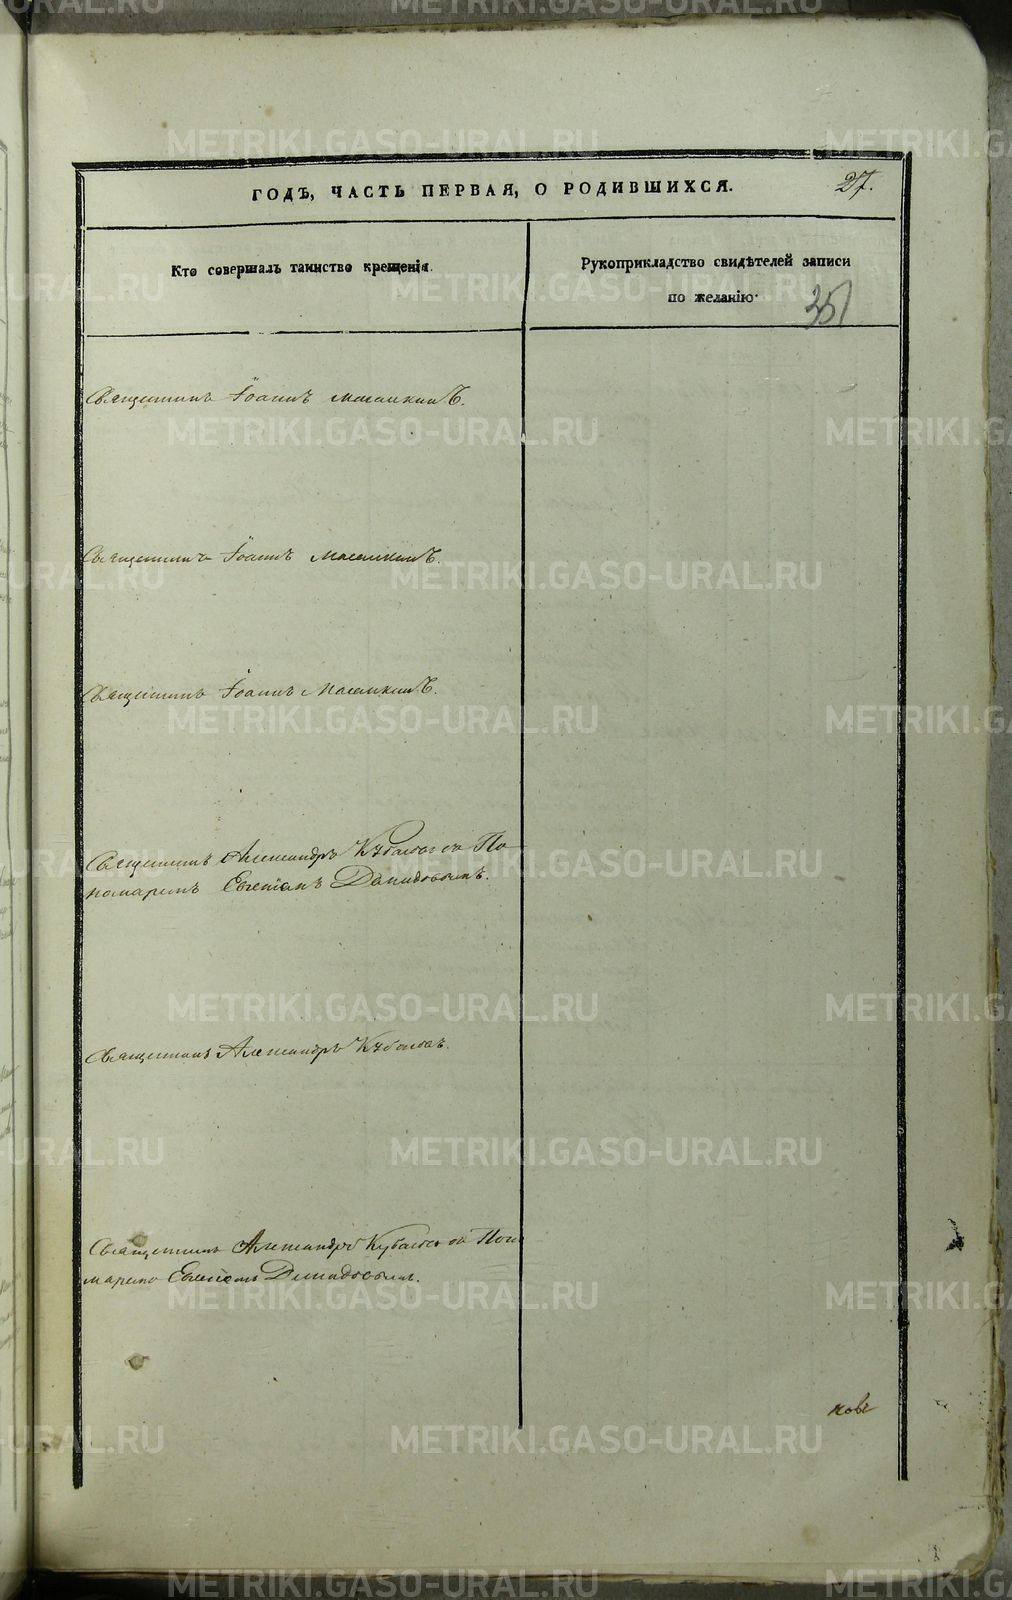 ГОДЪ, ЧАСТЬ ПЕРВАЯ, О РОДИВШИХСЯ. 27.
Кто совершалъ таинство крещенія.
Рукоприкладство свидѣтелей записи
по желанію.
351
Священникъ Іоаннъ
Священникъ Іоаннъ
Священникъ Іоаннъ
Священникъ Александръ Кубасовъ съ По
номаремъ Евгеніемъ Давидовымъ.
Священникъ Александръ Кубасовъ.
Священникъ Александръ Кубасовъ съ Поно
маремъ Евгеніемъ Давидовымъ.
METRIKI.GASO-URAL.RU